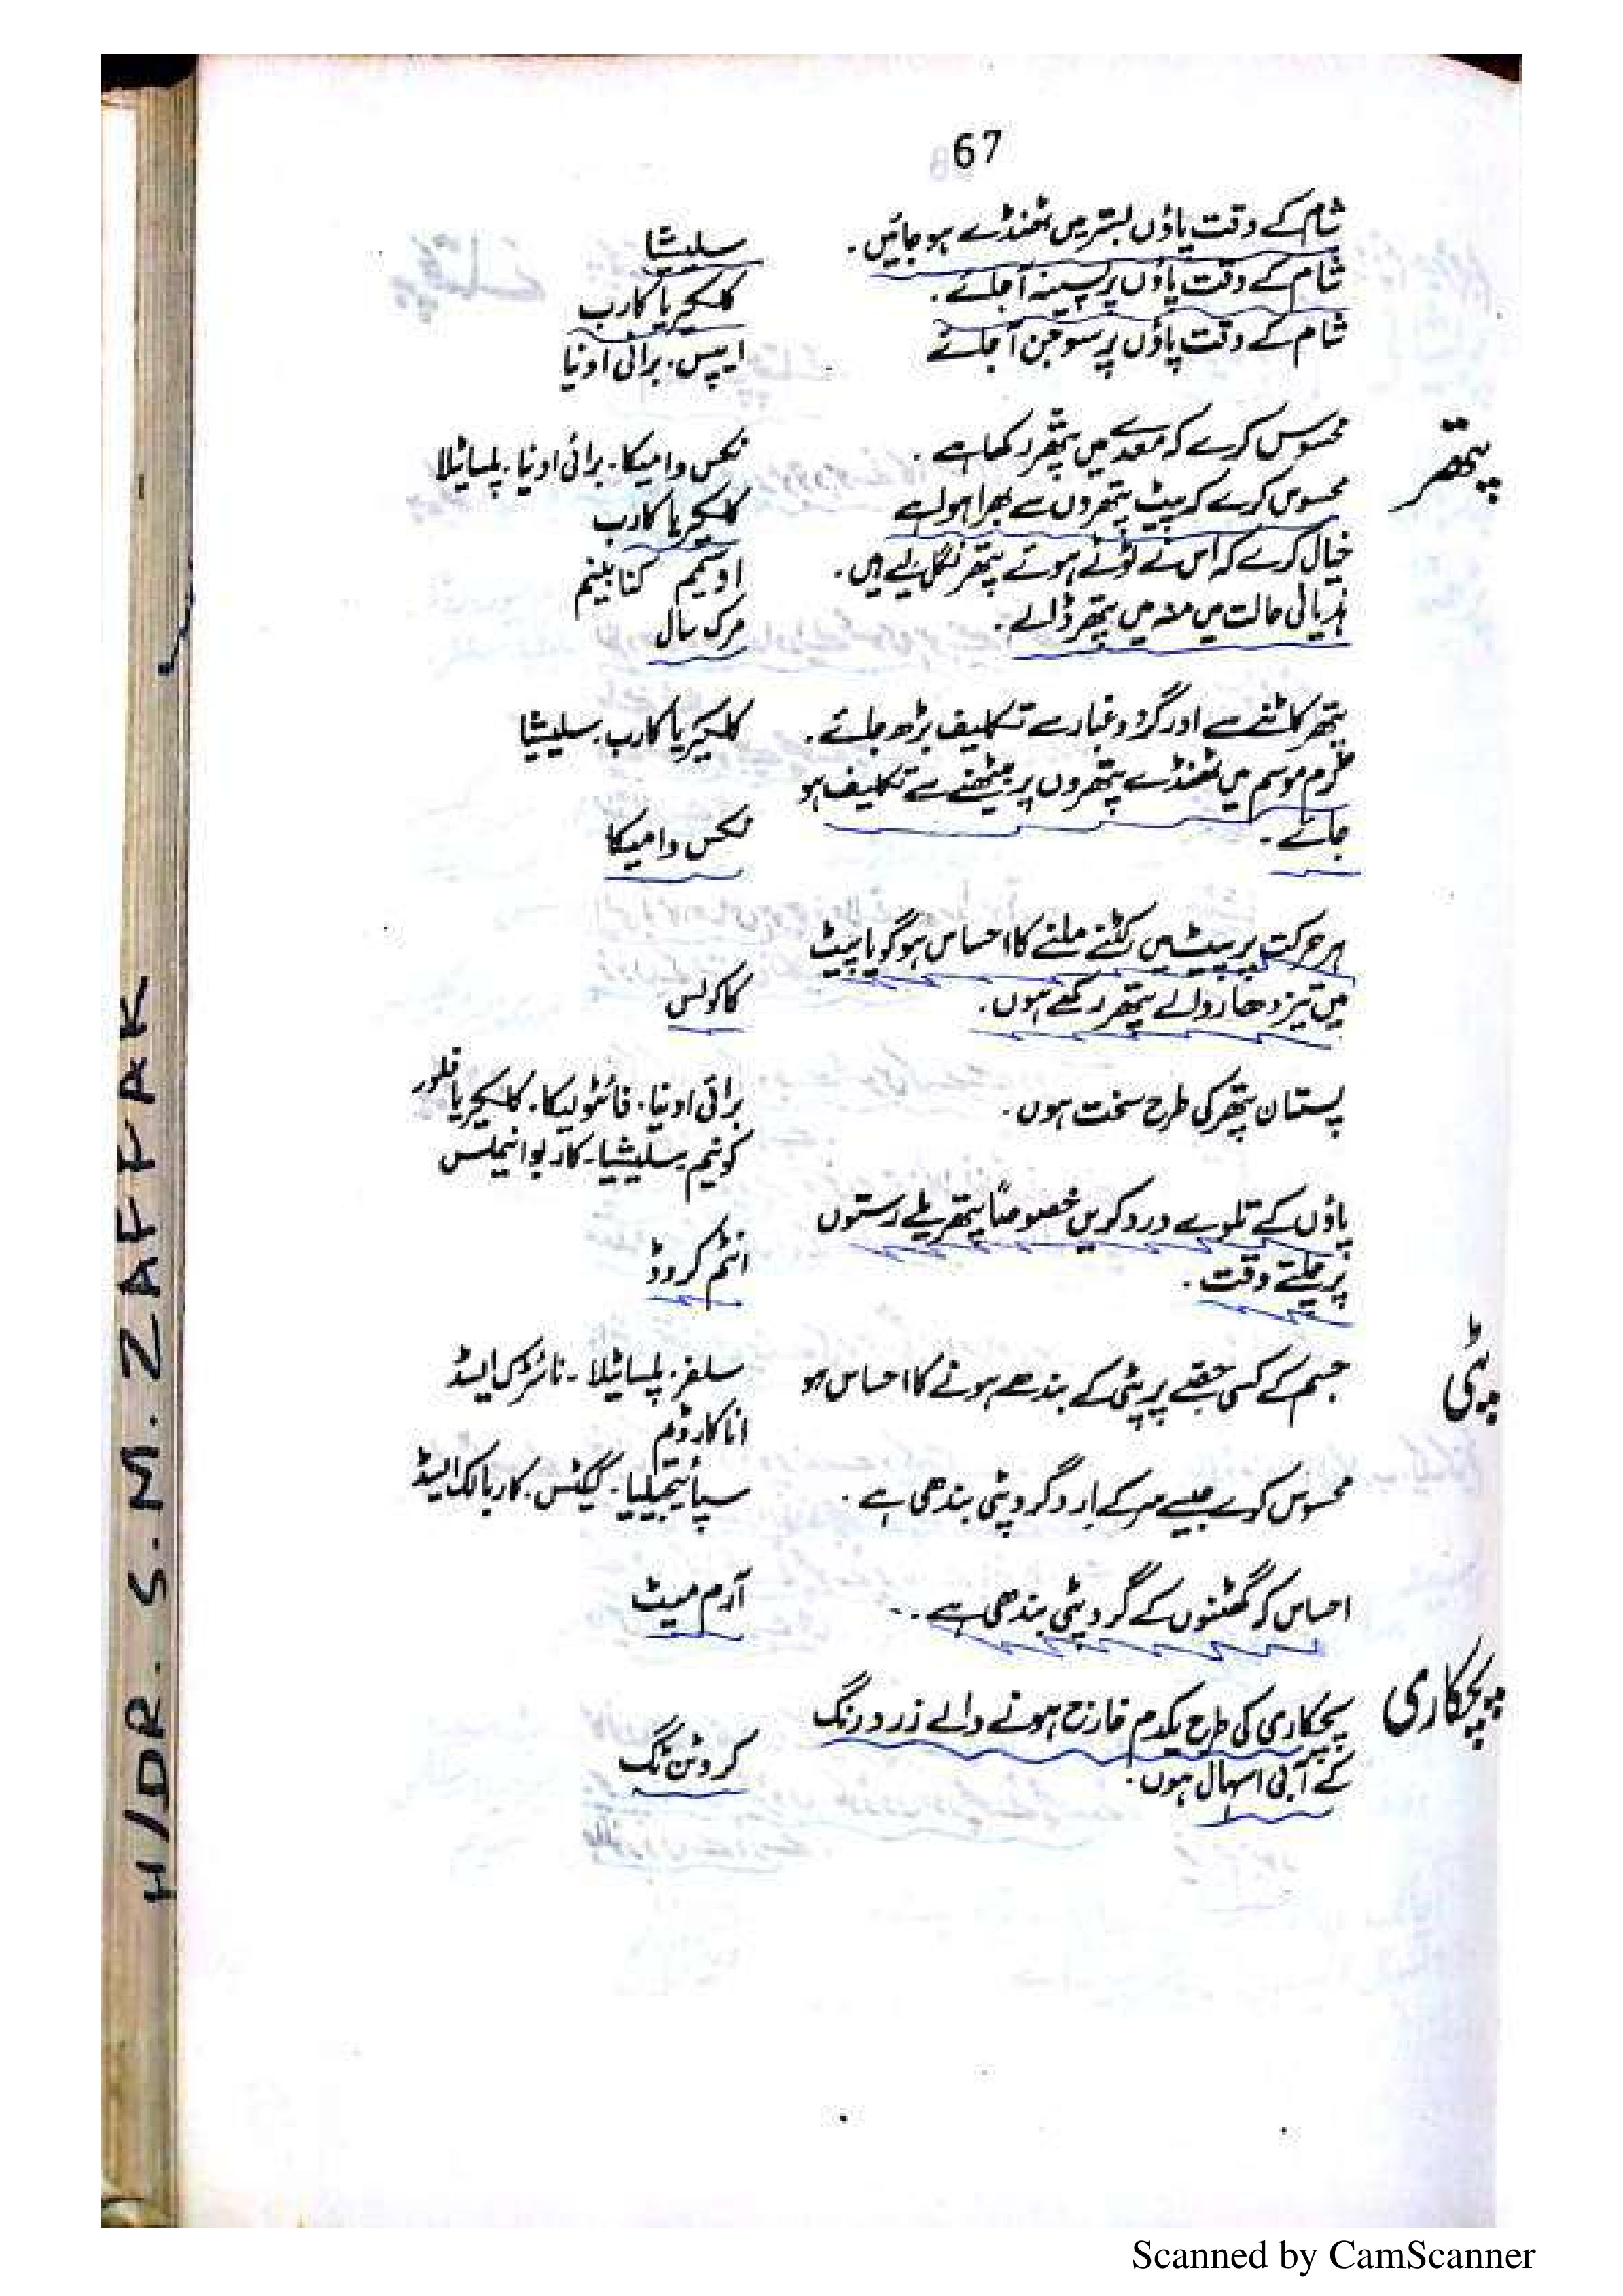 67
شام کے وقت پاؤں بستر میں ٹھنڈے ہو جائیں۔ سلیشا
شام کے وقت پاؤں پر پسینہ آ جائے۔ کلکیریا کارب
شام کے وقت پاؤں پر سوجن آ جائے ایپس۔ برائی اونیا
پتھر محسوس کرے کہ معدے میں پتھر رکھا ہے۔ نکس وامیکا۔ برائی اونیا۔ پلساٹیلا
محسوس کرے کہ پیٹ پتھروں سے بھرا ہوا ہے کلکیریا کارب
خیال کرے کہ اس نے ٹوٹے ہوئے پتھر نگل لیے ہیں۔ اوسمیم کنابینم
ہذیانی حالت میں منہ میں پتھر ڈالے۔ مرک سال
پتھر کاٹنے سے اور گرد و غبار سے تکلیف بڑھ جائے۔ کلکیریا کارب۔ سلیشیا
گرم موسم میں ٹھنڈے پتھروں پر بیٹھنے سے تکلیف ہو
جائے۔ نکس وامیکا
ہر حرکت پر پیٹ میں کٹنے ملنے کا احساس ہو گویا پیٹ
میں تیز دھار والے پتھر رکھے ہوں۔ کاکولس
پستان پتھر کی طرح سخت ہوں۔ برائی اونیا۔ فائٹولیکا۔ کلکیریا فلور
کونیم۔ سلیشیا۔ کاربوانیملس
پاؤں کے تلوے درد کریں خصوصاً پتھریلے رستوں
پر چلتے وقت۔ انٹم کروڈ
پٹی جسم کے کسی حصّے پر پٹی کے بندھے ہونے کا احساس ہو سلفر۔ پلساٹیلا۔ نائٹرک ایسڈ
اناکارڈیم
محسوس کرے جیسے سر کے ارد گرد پٹی بندھی ہے۔ سپائیجیلیا۔ کیکٹس۔ کاربالک ایسڈ
احساس کہ گھٹنوں کے گرد پٹی بندھی ہے۔ آرم میٹ
پچکاری پچکاری کی طرح یکدم خارج ہونے والے زرد رنگ
کے آبی اسہال ہوں۔ کروٹن ٹگ
H/DR. S.M. ZAFFAR
Scanned by CamScanner